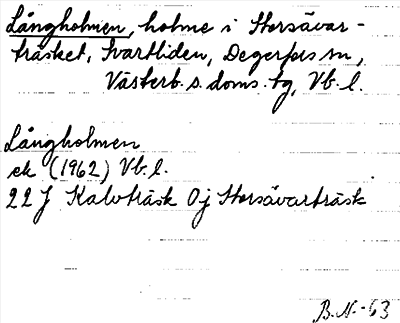 Långholmen, holme i Storsävar-
träsket, Svartliden, Degerfors sn,
Västerb. s. doms. tg, Vb. l.
Långholmen
ek (1962) Vb. l.
22 J Kalvträsk 0j Storsävarträsk
B.N.-63